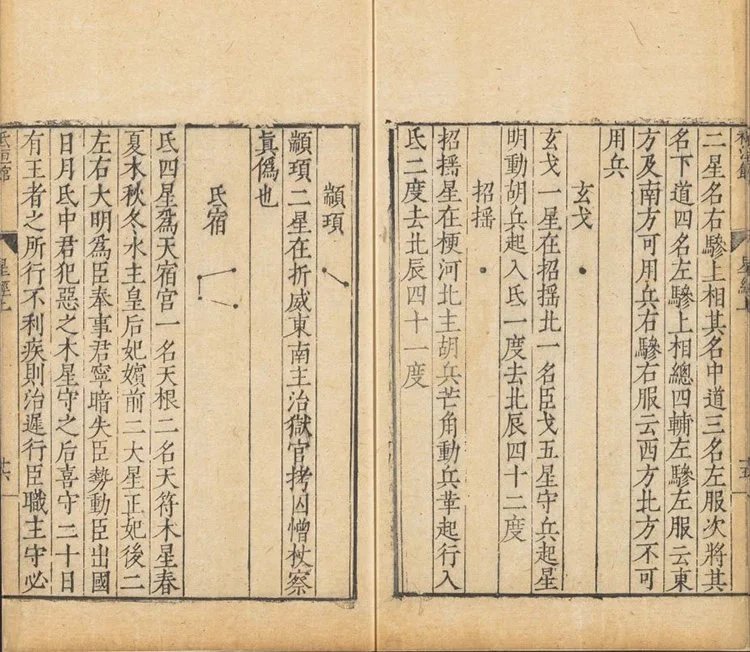 二星名右驂上相其名中道三名左服次將其
名下道四名左驂上相總四輔左驂左服云東
方及南方可用兵右驂右服云西方北方不可
用兵
玄戈
玄戈一星在招揺北一名臣戈五星守兵起星
明動胡兵起入氐一度去北辰四十二度
招揺
招揺星在梗河北主胡兵芒角動兵革起行入
氐二度去北辰四十一度
顓頊
顓頊二星在折威東南主治獄官拷囚憎杖察
眞僞也
氐宿
氐四星爲天宿宫一名天根二名天符木星春
夏水秋冬水主皇后妃嬪前二大星正妃後二
左右大明爲臣奉事君寧暗失臣勢動臣出國
日月氐中君犯惡之木星守之后喜守二十日
有王者之所行不利疾則治遲行臣職主守必
星經上